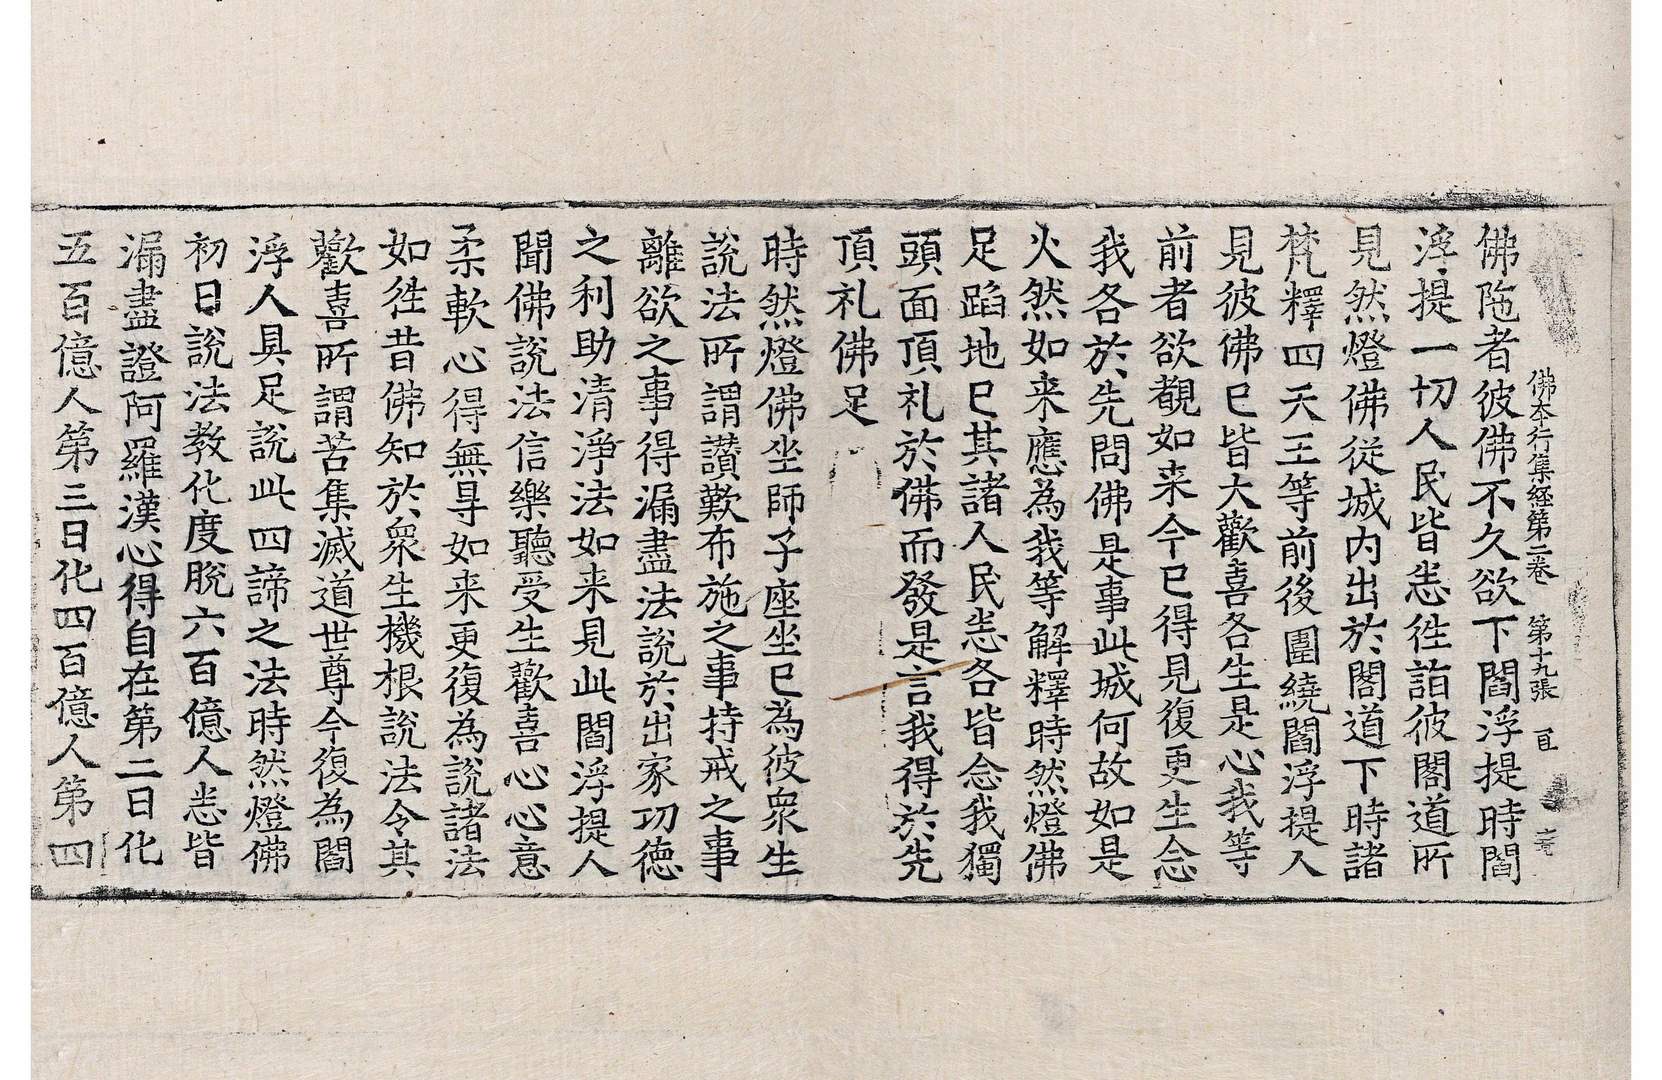 佛本行集経第二卷　第十九張
佛陁者彼佛不久欲下閻浮提時閻
浮提一切人民皆悉徃詣彼閣道所
見然燈佛従城内出於閣道下時諸
梵釋四天王等前後圍繞閻浮提人
見彼佛已皆大歡喜各生是心我等
前者欲覩如来今已得見復更生念
我各於先問佛是事此城何故如是
火然如来應為我等解釋時然燈佛
足蹈地已其諸人民悉各皆念我獨
頭面頂礼於佛而發是言我得於先
頂礼佛足
時然燈佛坐師子座坐已為彼衆生
說法所謂讃歎布施之事持戒之事
離欲之事得漏盡法說於出家功徳
之利助清淨法如来見此閻浮提人
聞佛說法信樂聽受生歡喜心心意
柔軟心得無㝵如来更復為說諸法
如徃昔佛知於衆生機根說法令其
歡喜所謂苦集滅道世尊今復為閻
浮人具足說此四諦之法時然燈佛
初日說法教化度脫六百億人悉皆
漏盡證阿羅漢心得自在第二日化
五百億人第三日化四百億人第四